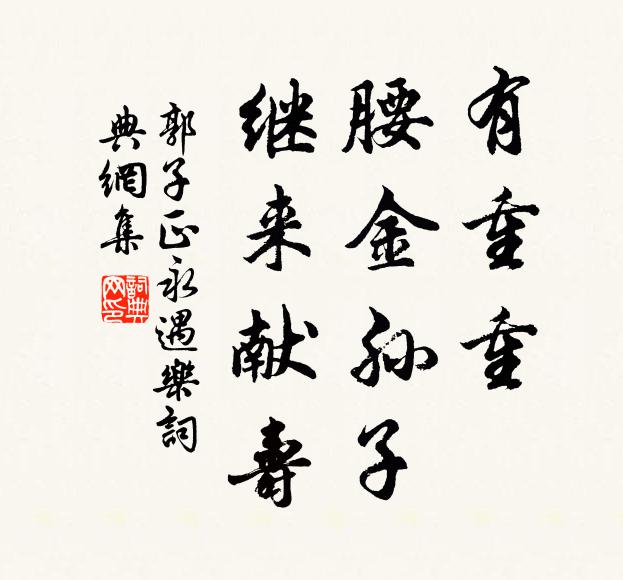 有重重
腰金孙子
继来献寿
郭子正永遇樂詞
典網集
詞典
网印